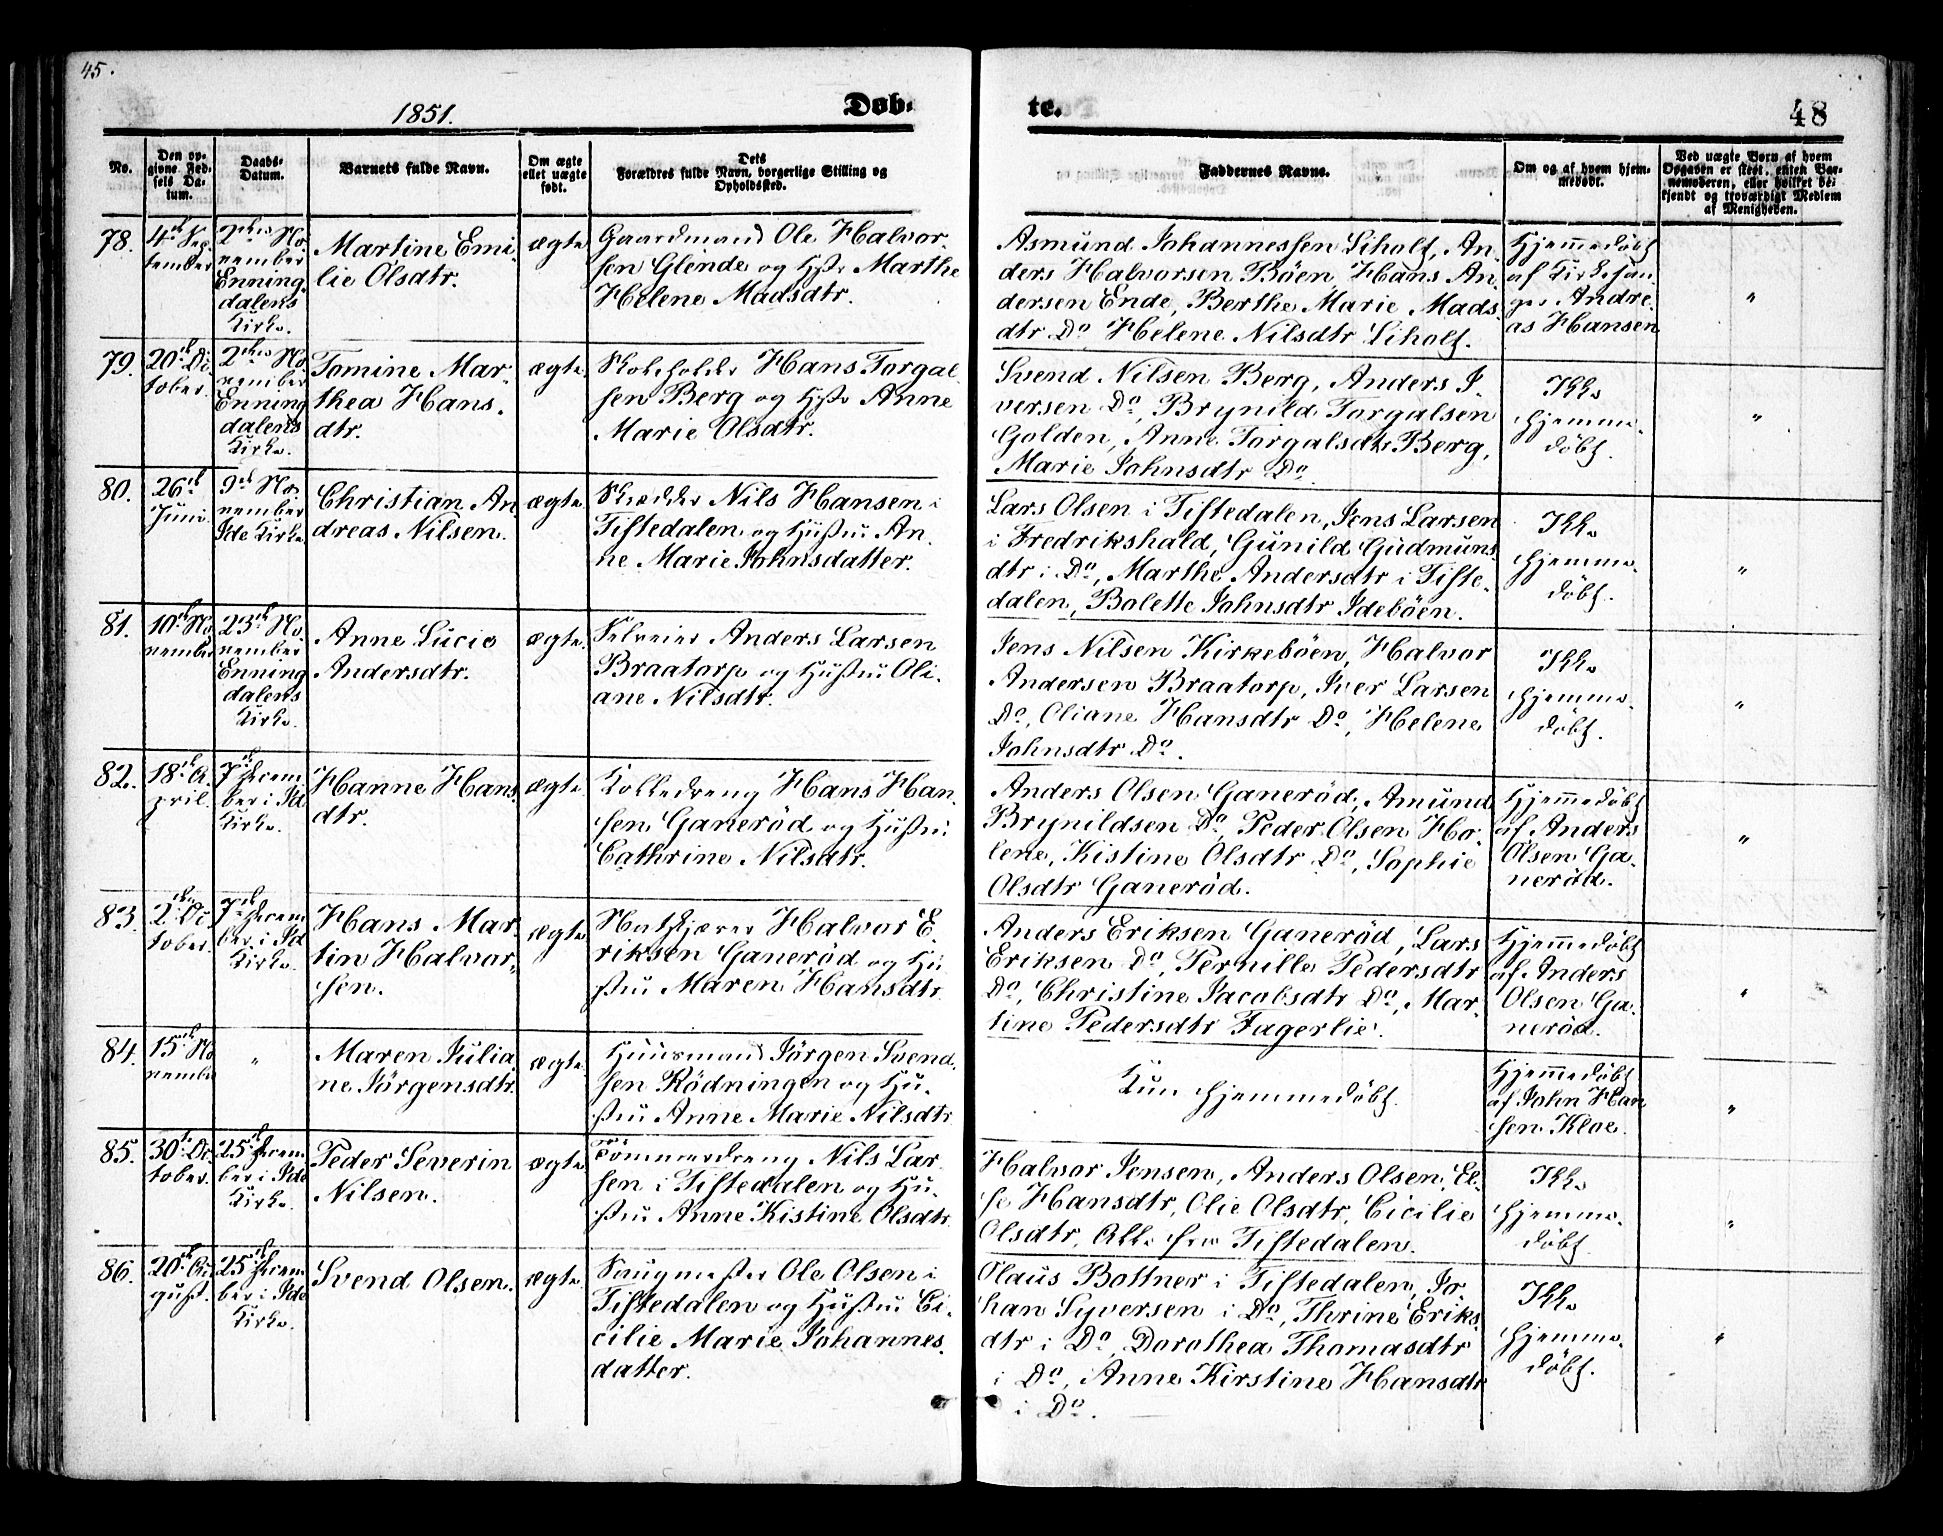 45.
1851.
Døb-
te.
48
No.
Den op-
givne Fød-
sels Da-
tum.
Daabs-
Datum.
Barnets fulde Navn.
Om ægte
eller uægte
født.
Dets
Forældres fulde Navn, borgerlige Stilling og
Opholdssted.
Faddernes Navne.
Om og af hvem hjem-
medøbt.
Ved uægte Børn af hvem
Opgaven er skeet, enten Bar-
nemoderen, eller hvilket be-
kjendt og troværdigt Medlem
af Menigheden.
78.
4de Sep-
tember
2den No-
vember
Enning-
dalens
Kirke.
Martine Emi-
lie Olsdtr.
ægte
Gaardmand Ole Halvor-
sen Glende og Hstr Marthe
Helene Madsdtr.
Asmund Johannessen Liholt, An-
ders Halvorsen Böen, Hans An-
dersen Ende, Berthe Marie Mads-
dtr Do Helene Nilsdtr Liholt.
Hjemmedöbt
af Kirkesan-
ger Andre-
as Hansen
"
79.
20de Oc-
tober.
2den No-
vember
Enning-
dalens
Kirke.
Tomine Mar-
thea Hans-
dtr.
ægte.
Skoleholder Hans Torgal-
sen Berg og Hstr Anne
Marie Olsdtr.
Svend Nilsen Berg, Anders I-
versen Do, Brynild Torgalsen
Golden, Anne Torgalsdtr Berg,
Marie Johnsdtr Do
Ikke
hjemme-
döbt.
"
80.
26de
Juni.
9de No-
vember
Ide Kirke
Christian An-
dreas Nilsen.
ægte.
Skrædder Nils Hansen i
Tistedalen og Hustru An-
ne Marie Johnsdatter.
Lars Olsen i Tistedalen, Jens Larsen
i Fredrikshald, Gunild Gudmuns-
dtr i Do, Marthe Andersdtr i Tiste-
dalen, Bolette Johnsdtr Ideböen.
Ikke
hjemme-
döbt.
"
81.
10de No-
vember
23de No-
vember
Enning-
dalens
Kirke.
Anne Lucie
Andersdtr.
ægte.
Selveier Anders Larsen
Braatorp og Hustru Oli-
ane Nilsdtr.
Jens Nilsen Kirkeböen, Halvor
Andersen Braatorp, Iver Larsen
Do, Oliane Hansdtr Do, Helene
Johnsdtr Do.
Ikke
hjemme-
döbt.
"
82.
18de A-
pril.
7de Decem-
ber i Id
Kirke.
Hanne Hans-
dtr.
ægte.
Hans Han-
sen Ganeröd og Hustru
Cathrine Nilsdtr.
Anders Olsen Ganeröd, Amund
Brynildsen Do, Peder Olsen Ho-
lene, Kistine Olsdtr Do, Sophie
Olsdtr Ganeröd.
Hjemmedöbt
af Anders
Olsen Ga-
neröd.
"
83.
2den Oc-
tober.
7de Decem-
ber i Id
Kirke.
Hans Mar-
tin Halvor-
sen.
ægte
Halvor E-
riksen Ganeröd og Hu-
stru Maren Hansdtr
Anders Eriksen Ganeröd, Lars
Eriksen Do, Pernille Pedersdtr
Do, Christine Jacobsdtr Do, Mar-
tine Pedersdtr Fagerlie.
Hjemmedöbt
af Anders
Olsen Ga-
neröd.
"
84.
15de No-
vember
"
Maren Julia-
ne Jörgensdtr.
ægte.
Huusmand Jörgen Svend-
sen Rödningen og Hu-
stru Anne Marie Nilsdtr
Kun hjemmedöbt.
Hjemmedöbt
af John Han-
sen Kloe.
"
85.
30te Oc-
tober.
25de Decem-
ber i Ide
Kirke.
Peder Severin
Nilsen.
ægte
Tömmerdreng Nils Lar-
sen i Tistedalen og Hu-
stru Anne Kistine Olsdtr.
Halvor Jensen, Anders Olsen, El-
se Hansdtr, Olie Olsdtr, Cicilie
Olsdtr, Alle fra Tistedalen.
Ikke
hjemme-
döbt.
"
86.
20de Au-
gust.
25de Decem-
ber i Ide
Kirke.
Svend Olsen.
ægte.
Saugmester Ole Olsen i
Tistedalen og Hustru Ci-
cilie Marie Johannes-
datter.
Olaus Bottner i Tistedalen, Jo-
han Syversen i Do, Thrine Eriks-
dtr i Do, Dorothea Thomasdtr
i Do, Anne Kirstine Hansdtr
i Do.
Ikke
hjemme-
döbt.
"